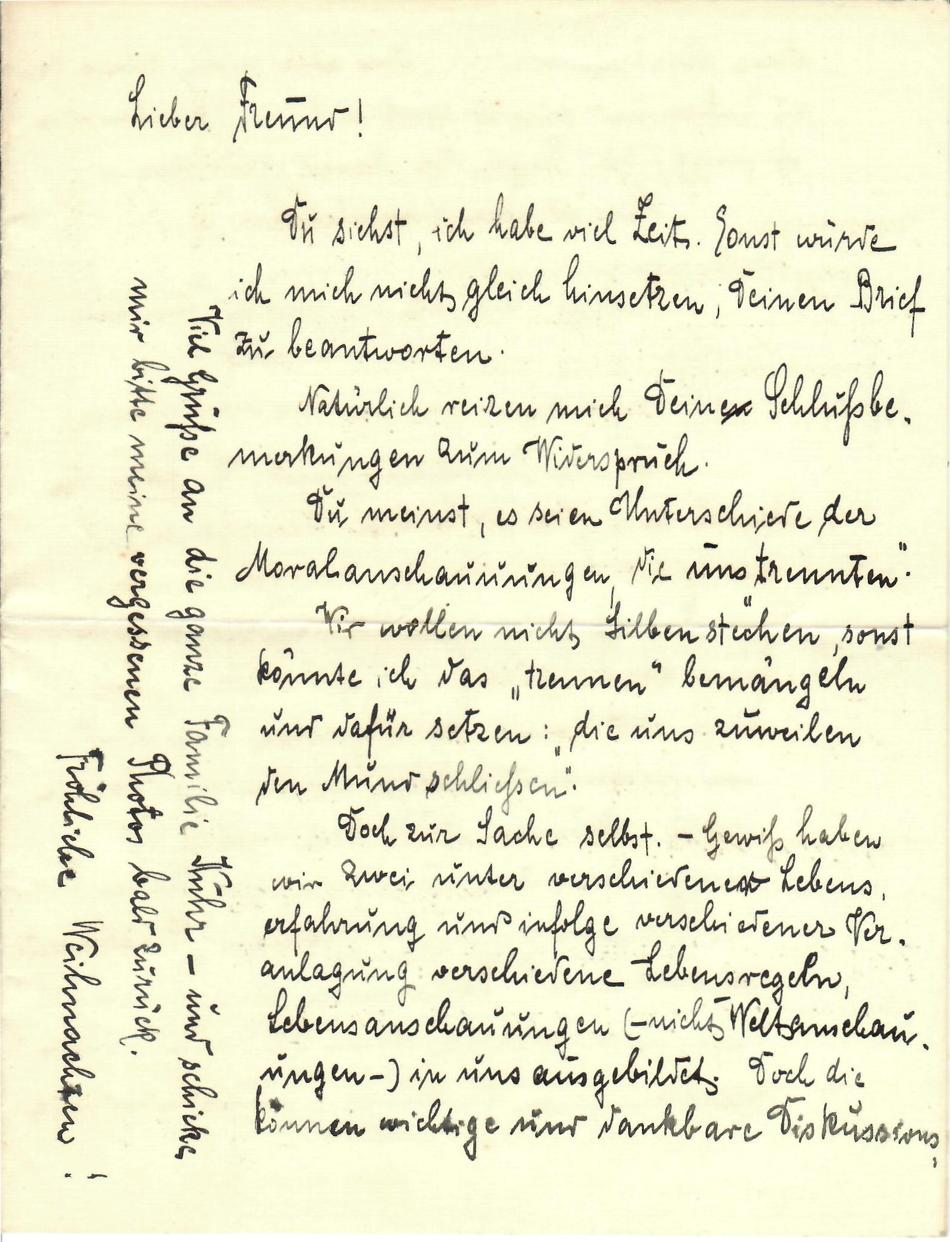 Lieber Freund!
Du siehst, ich habe viel Zeit. Sonst würde
ich mich nicht gleich hinsetzen, Deinen Brief
zu beantworten.
Natürlich reizen mich Deine Schlußbe-
merkungen zum Widerspruch.
Du meinst, es seien Unterschiede der
Moralanschauungen, die uns „trennten“.
Wir wollen nicht Silben stechen, sonst
könnte ich das „trennen“ bemängeln
und dafür setzen: „die uns zuweilen
den Mund schließen“.
Doch zur Sache selbst. – Gewiß haben
wir zwei unter verschiedener Lebens-
erfahrung und infolge verschiedener Ver-
anlagung verschiedene Lebensregeln,
Lebensanschauungen (– nicht Weltanschau-
ungen –) in uns ausgebildet. Doch die
können wichtige und dankbare Diskussions-
Viel Grüße an die ganze Familie – und schicke
mir bitte meine vergessenen Photos bald zurück.
Fröhliche Weihnachten!